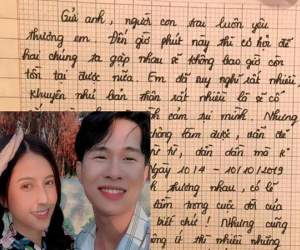 Gửi anh, người con trai luôn yêu
thương em. Đến giờ phút này thì cơ hội để
hai chúng ta gặp nhau sẽ không bao giờ còn
tồn tại được nữa. Em đã suy nghĩ rất nhiều,
khuyên nhủ bản thân rất nhiều là sẽ cố
cam sự mình. Nhưng
không làm được, dần dần
dần dần mà
Ngày 10/4 - 10/10/2019
thương nhau, có lẽ
lầm trong cuộc đời của
biết chứ! Nhưng cũng
ít thì nhiều nhưng